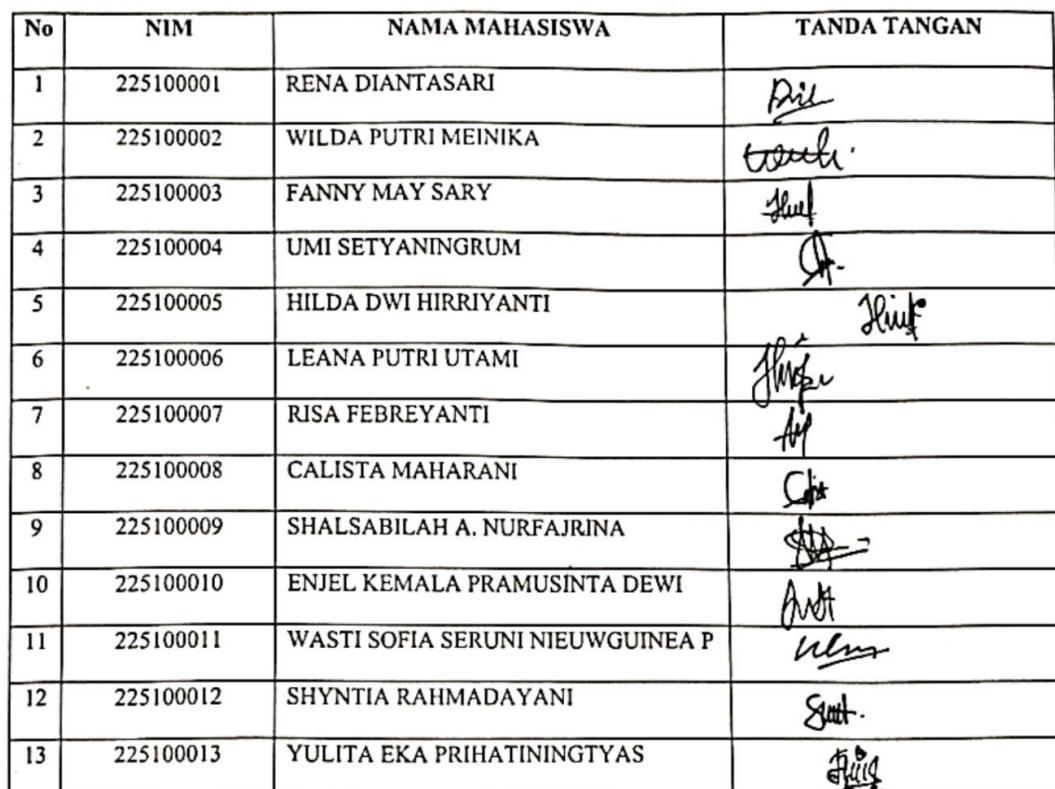 No NIM NAMA MAHASISWA TANDA TANGAN
1 225100001 RENA DIANTASARI
2 225100002 WILDA PUTRI MEINIKA
3 225100003 FANNY MAY SARY
4 225100004 UMI SETYANINGRUM
5 225100005 HILDA DWI HIRRIYANTI
6 225100006 LEANA PUTRI UTAMI
7 225100007 RISA FEBREYANTI
8 225100008 CALISTA MAHARANI
9 225100009 SHALSABILAH A. NURFAJRINA
10 225100010 ENJEL KEMALA PRAMUSINTA DEWI
11 225100011 WASTI SOFIA SERUNI NIEUWGUINEA P
12 225100012 SHYNTIA RAHMADAYANI
13 225100013 YULITA EKA PRIHATININGTYAS